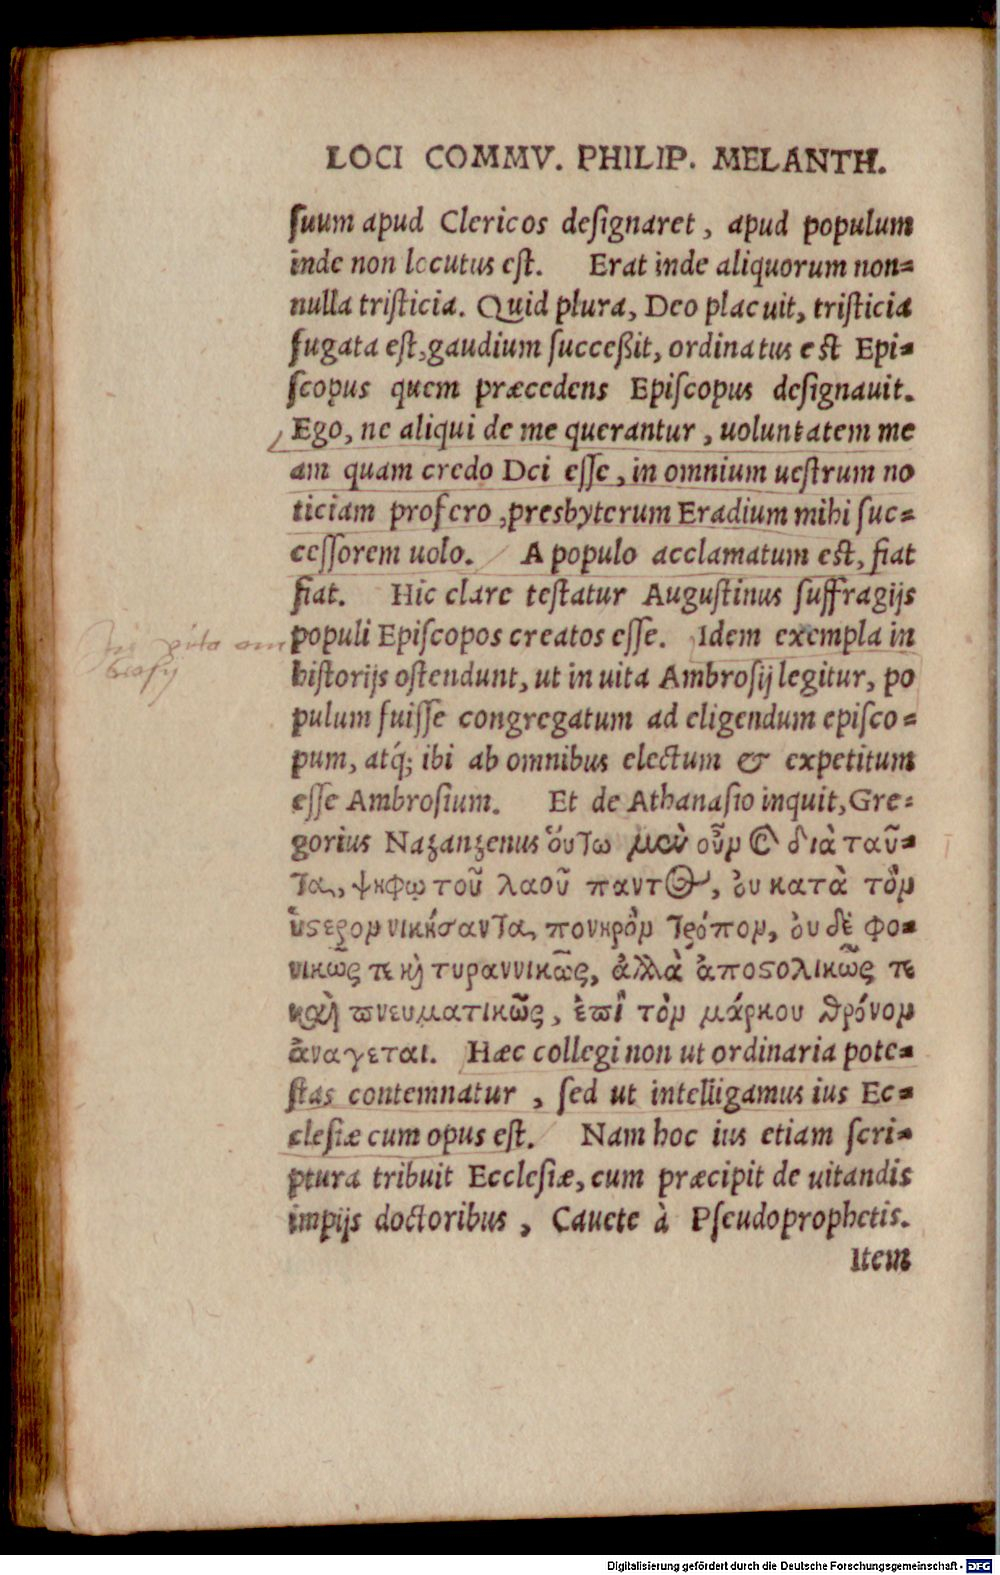 LOCI COMMV. PHILIP. MELANTH.
ſuum apud Clericos deſignaret, apud populum
inde non locutus eſt. Erat inde aliquorum non=
nulla triſticia. Quid plura, Deo placuit, triſticia
fugata eſt, gaudium ſucceßit, ordinatus eſt Epi=
ſcopus quem præcedens Epiſcopus deſignauit.
Ego, ne aliqui de me querantur, uoluntatem me
am quam credo Dei eſſe, in omnium ueſtrum no
ticiam profero, presbyterum Eradium mihi ſuc=
ceſſorem uolo. A populo acclamatum eſt, fiat
fiat. Hic clare teſtatur Auguſtinus ſuffragijs
populi Epiſcopos creatos eſſe. Idem exempla in
hiſtorijs oſtendunt, ut in uita Ambroſij legitur, po
pulum fuiſſe congregatum ad eligendum epiſco=
pum, atq́; ibi ab omnibus electum & expetitum
eſſe Ambroſium. Et de Athanaſio inquit, Gre=
gorius Nazanzenus ὅυτω μὲν οὖν καὶ διὰ ταῦ=
τα, ψηφῳ τοῦ λαοῦ παντὸς, ὀυ κατὰ τὸν
ὕςερον νικήσαντα, πονηρὸν τρόπον, ὀυδὲ φο=
νικῶς τε καὶ τυραννικῶς, ἀλλὰ ἀποςολικῶς τε
καὶ πνευματικῶς, ἐπὶ τὸν μάρκου θρόνον
ἀναγεται. Hæc collegi non ut ordinaria pote=
ſtas contemnatur, ſed ut intelligamus ius Ec=
cleſiæ cum opus eſt. Nam hoc ius etiam ſcri=
ptura tribuit Eccleſiæ, cum præcipit de uitandis
impijs doctoribus, Cauete à Pſeudoprophetis.
Item
In vita am
brosij
Digitalisierung gefördert durch die Deutsche Forschungsgemeinschaft - DFG